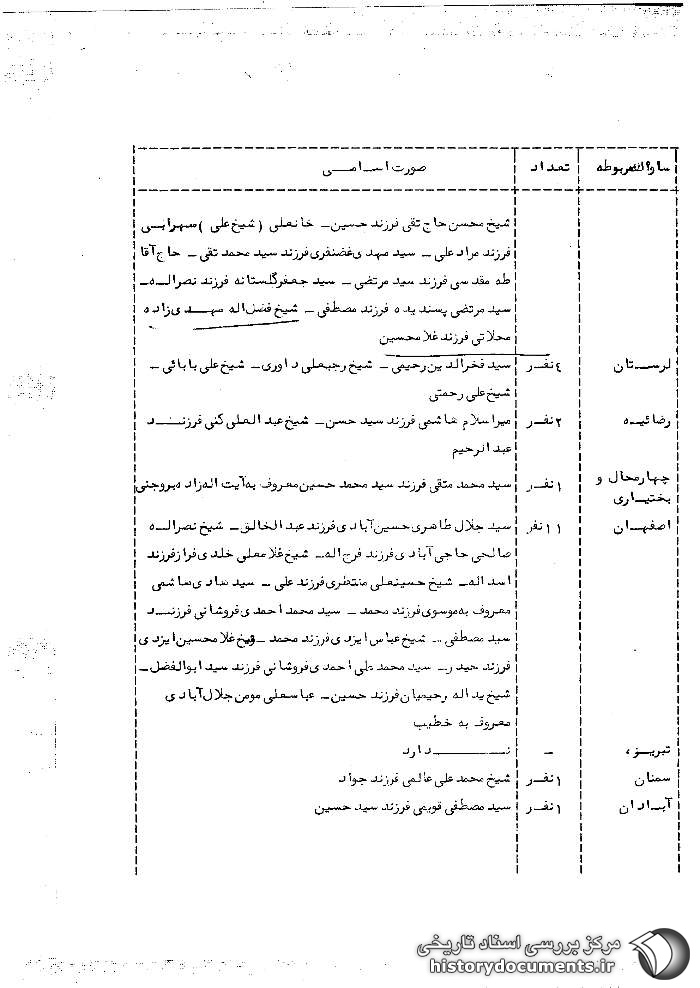 ساواک مربوطه | تعداد | صورت اسامی
شیخ محسن حاج تقی فرزند حسین ـ خانعلی (شیخ علی) سهرابی
فرزند مراد علی ـ سید مهدی غضنفری فرزند سید محمد تقی ـ حاج آقا
طه مقدسی فرزند سید مرتضی ـ سید جعفر گلستانه فرزند نصراله ـ
سید مرتضی پسندیده فرزند مصطفی ـ شیخ فضل اله مهدی زاده
محلاتی فرزند غلامحسین
لرستان | ٤ نفر | سید فخرالدین رحیمی ـ شیخ رجبعلی داوری ـ شیخ علی بابائی ـ
شیخ علی رحمتی
رضائیه | ۲ نفر | میراسلام هاشمی فرزند سید حسن ـ شیخ عبدالعلی کنی فرزند
عبدالرحیم
چهارمحال و
بختیاری | ۱ نفر | سید محمد متقی فرزند سید محمد حسین معروف به آیت اله زاده بروجنی
اصفهان | ۱۱ نفر | سید جلال طاهری حسین آبادی فرزند عبدالخالق ـ شیخ نصراله
صالحی حاجی آبادی فرزند فرج اله ـ شیخ غلامعلی خلدی فراز فرزند
اسداله ـ شیخ حسینعلی منتظری فرزند علی ـ سید هادی هاشمی
معروف به موسوی فرزند محمد ـ سید محمد احمدی فروشانی فرزند
سید مصطفی ـ شیخ عباس ایزدی فرزند محمد ـ شیخ غلامحسین ایزدی
فرزند حیدر ـ سید محمد علی احمدی فروشانی فرزند سید ابوالفضل ـ
شیخ یداله رحیمیان فرزند حسین ـ عباسعلی مومن جلال آبادی
معروف به خطیب
تبریز | ـ | ندارد
سمنان | ۱ نفر | شیخ محمد علی عالمی فرزند جواد
آبادان | ۱ نفر | سید مصطفی قویمی فرزند سید حسین
مرکز بررسی اسناد تاریخی
historydocuments.ir